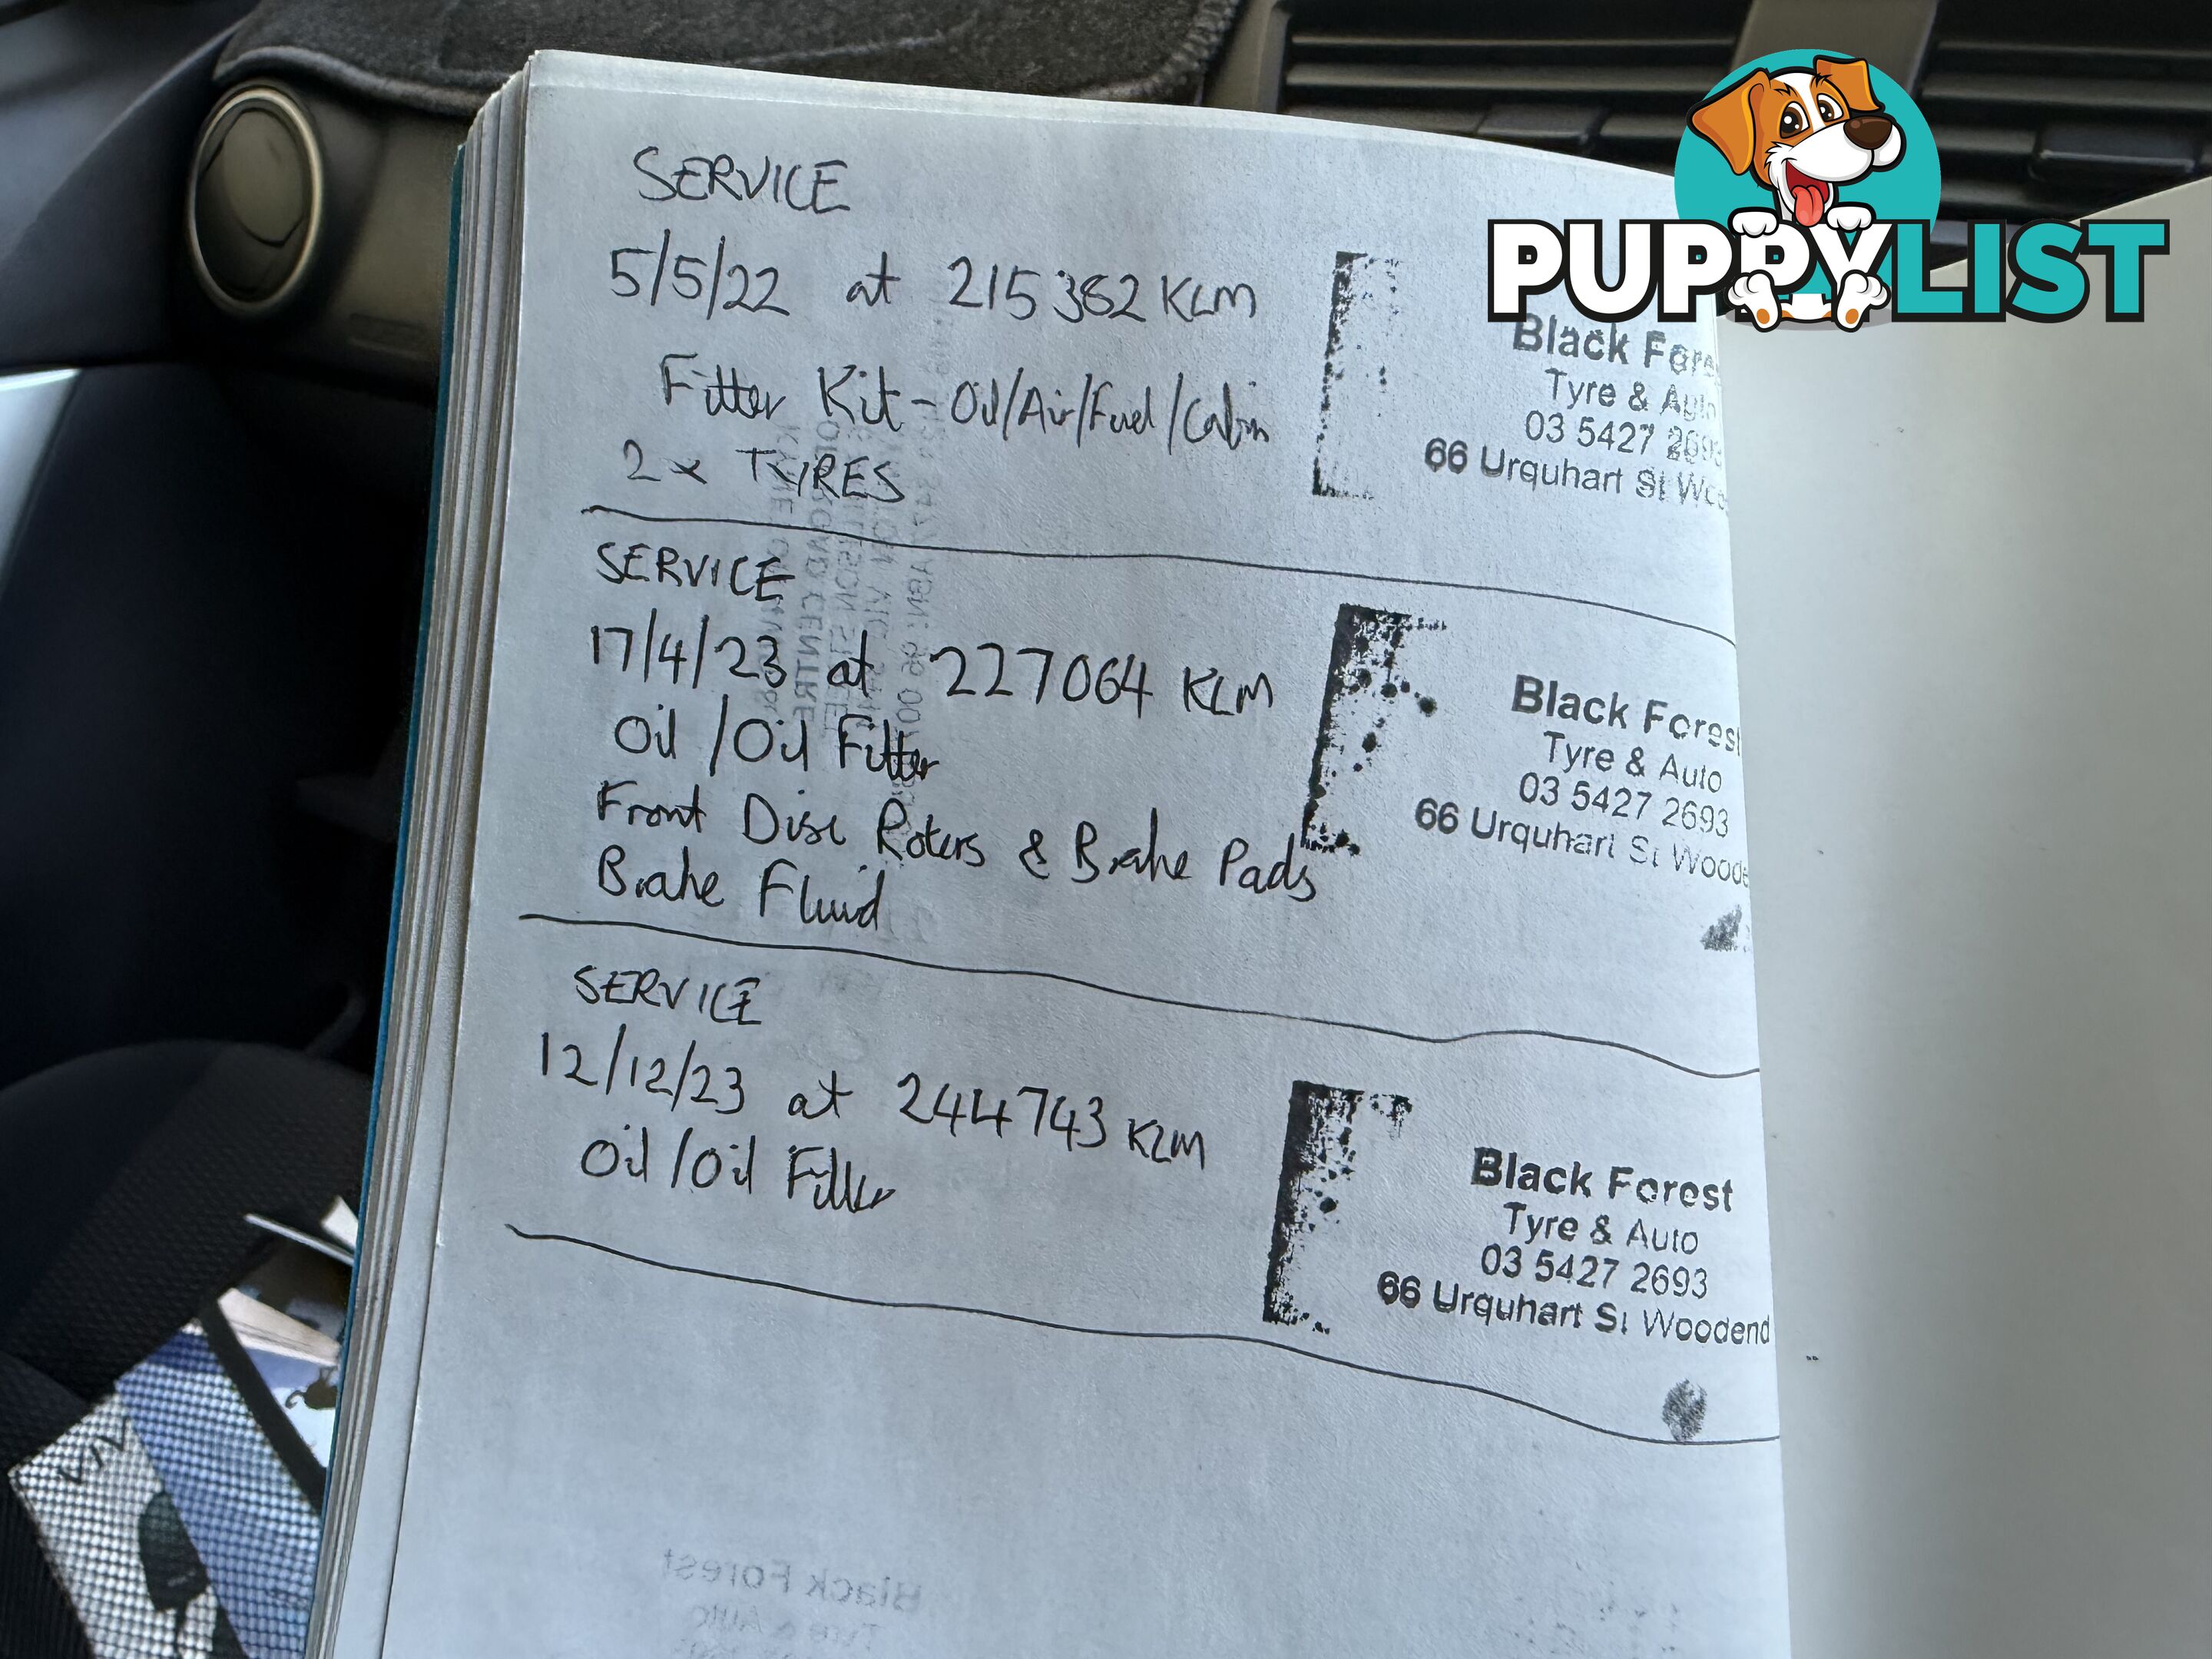 PUPPYLIST
SERVICE
5/5/22 at 215382 KLM
Filter Kit - Oil/Air/Fuel/Cabin
2x TYRES
Black Fore
Tyre & Auto
03 5427 2693
66 Urquhart St Woo
SERVICE
17/4/23 at 227064 KLM
Oil / Oil Filter
Front Disc Roters & Brake Pads
Brake Fluid
Black Forest
Tyre & Auto
03 5427 2693
66 Urquhart St Woode
SERVICE
12/12/23 at 244743 KLM
Oil / Oil Filter
Black Forest
Tyre & Auto
03 5427 2693
66 Urquhart St Woodend
Black Forest
Tyre & Auto